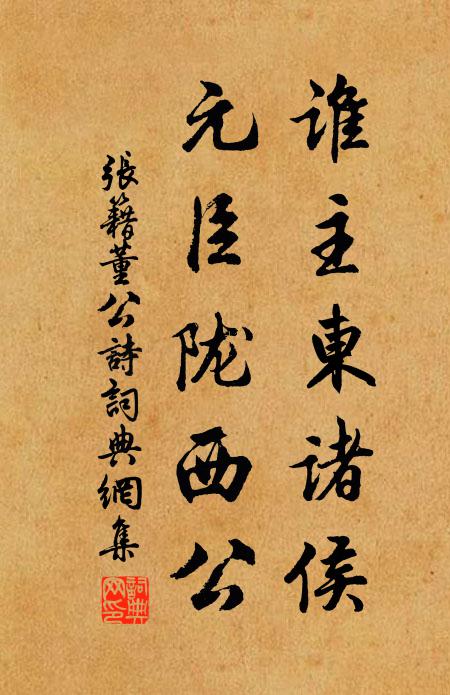 誰主東諸侯
元臣陇西公
張籍董公詩詞典網集
詞典网印